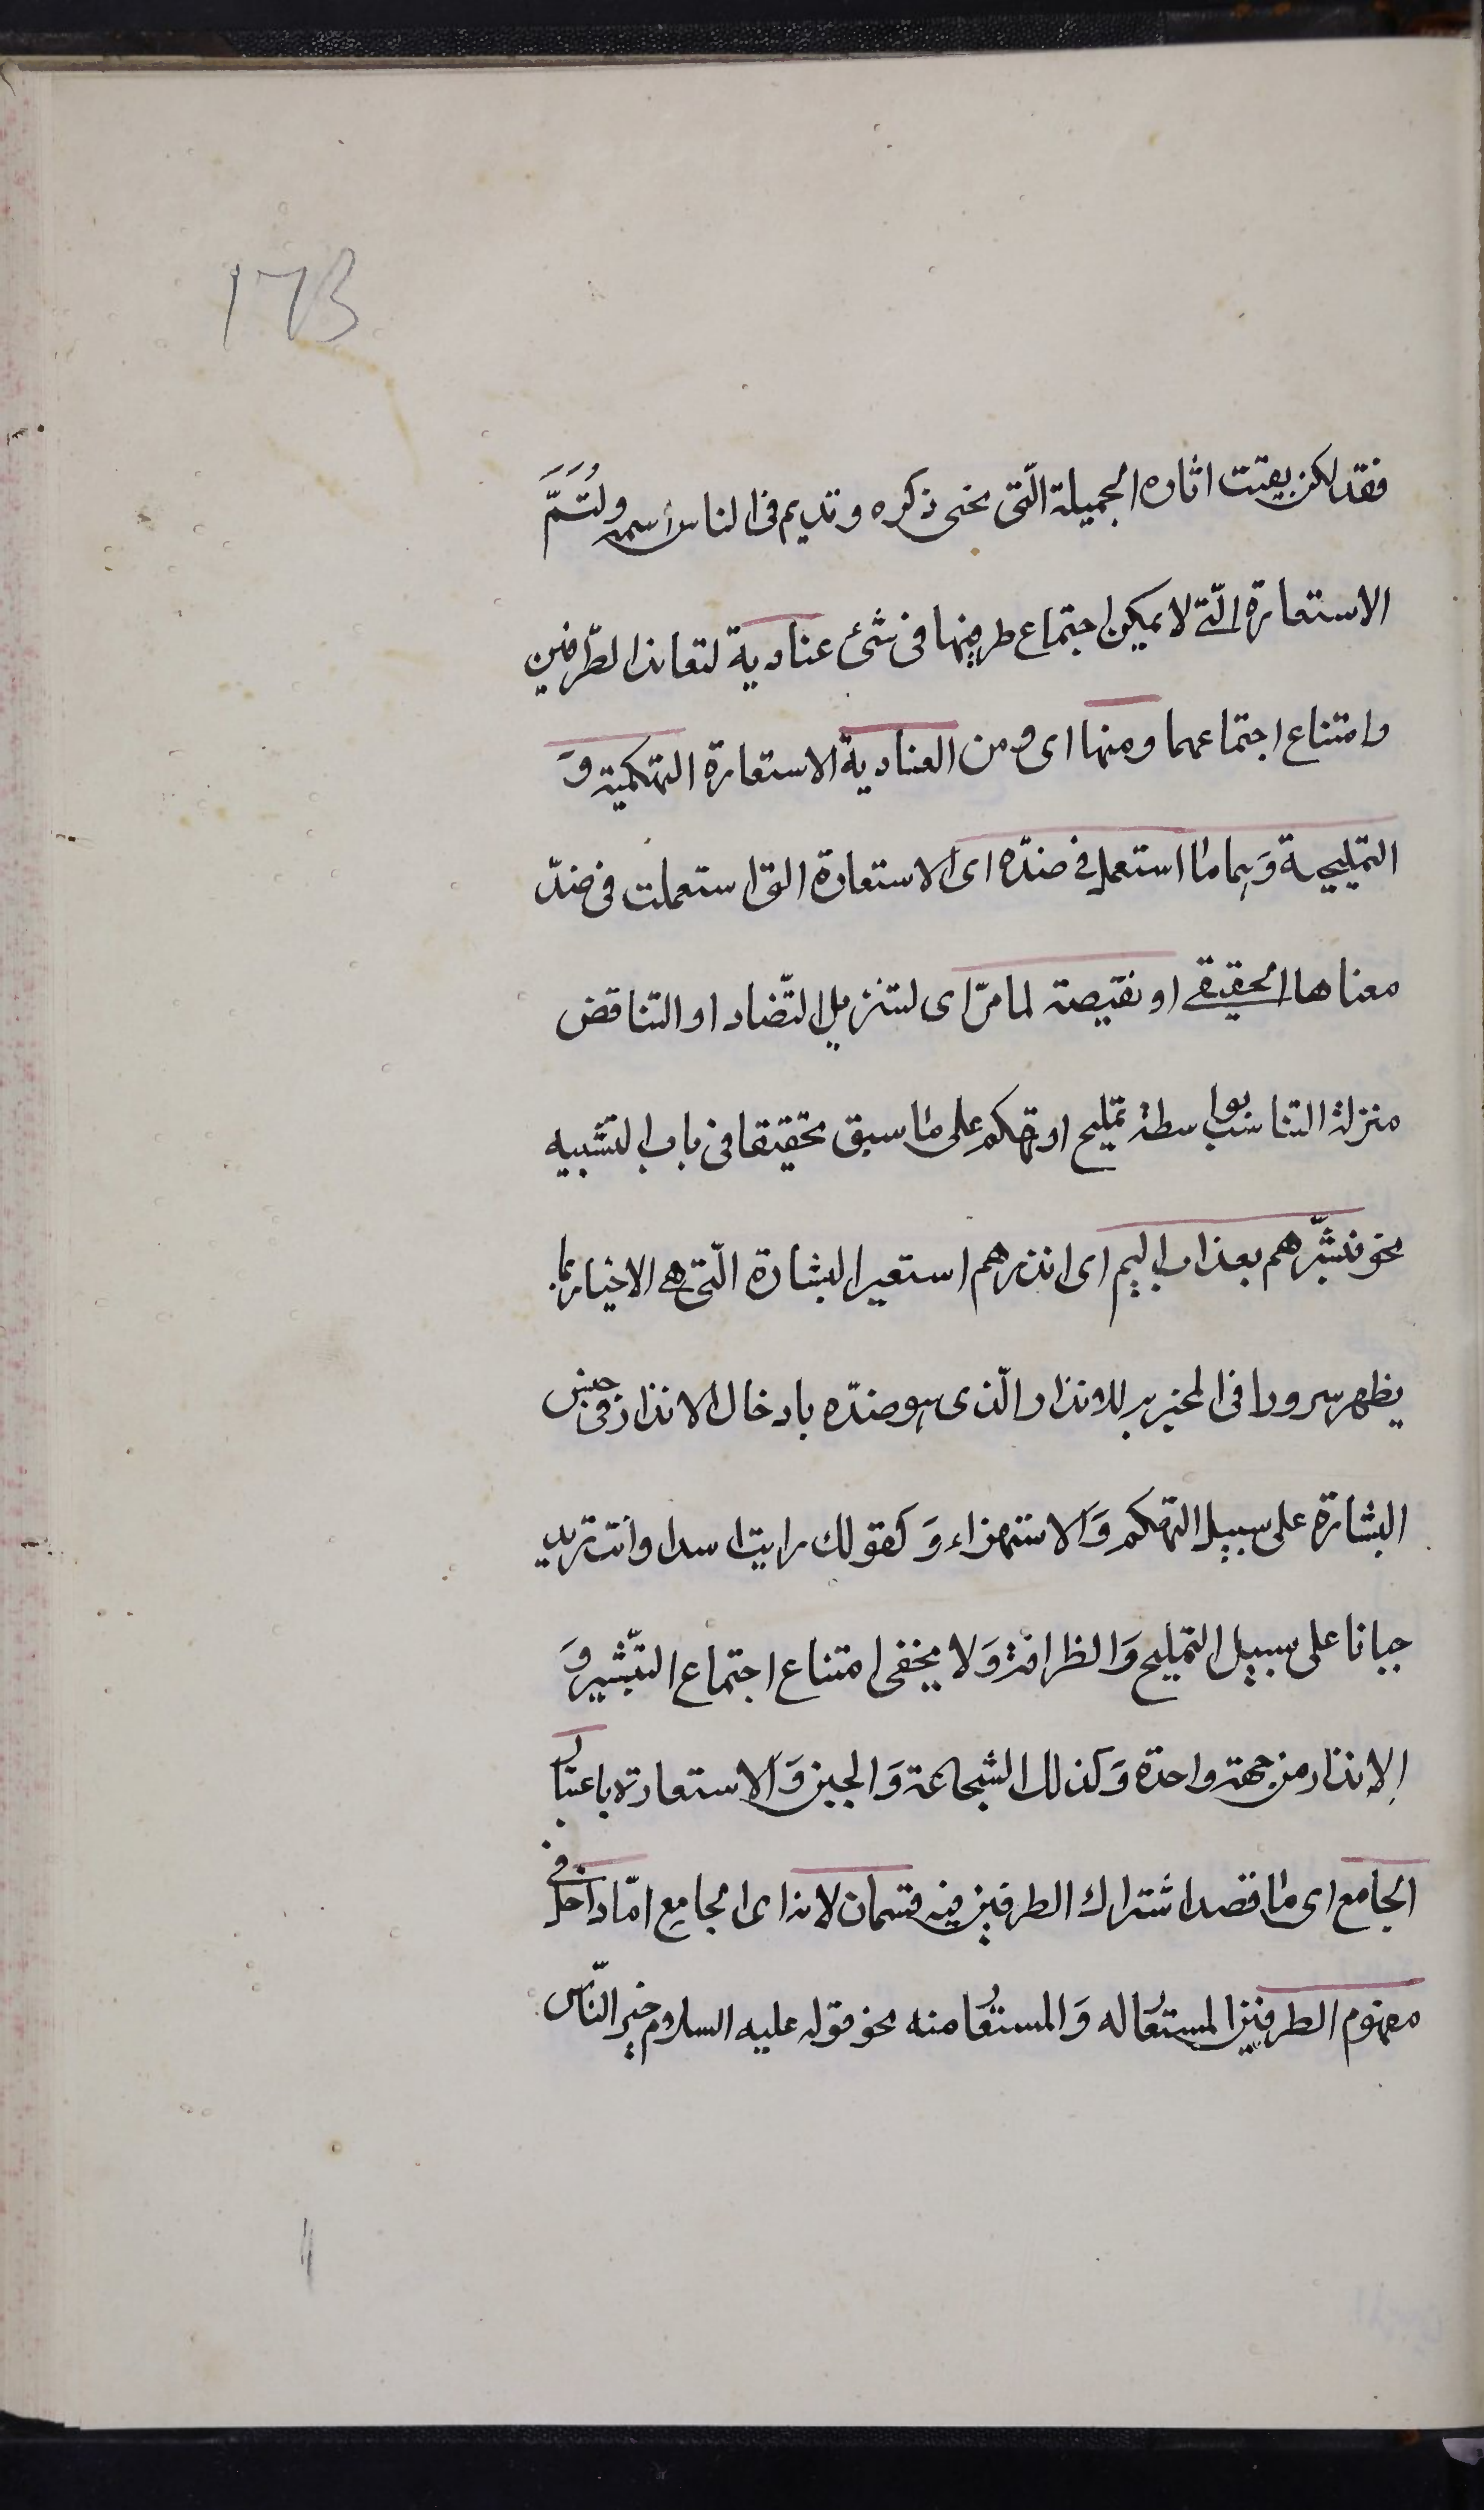 173
فقد لكن بقيت اثاره الجميلة الّتى تحيى ذكره وتديم فى الناس اسمه ولتسمّ
الاستعارة الّتى لا يمكن اجتماع طرفيها فى شئ عنادية لتعاند الطّرفين
وامتناع اجتماعهما ومنها اى ومن العنادية الاستعارة التهكمية وَ
التمليحية وَهما ما استعمل فى ضدّه اى الاستعارة التى استعملت فى ضدّ
معناها الحقيقى او نقيضه لما مرّ اى لتنزيل التّضاد او التناقض
منزلة التناسب بواسطة تمليح او تهكم على ما سبق تحقيقا فى باب التشبيه
نحو فبشّرهم بعذاب اليم اى انذرهم استعير البشارة الّتى هى الاخبار بما
يظهر سرورا فى المخبر به للانذار الّذى هو ضدّه بادخال الانذار فى جنس
البشارة على سبيل التهكم وَالاستهزاء وَكقولك رايت اسدا وانت تريد
جبانا على سبيل التمليح وَالظرافة وَلا يخفى امتناع اجتماع التبشير وَ
الانذار من جهة واحدة وَكذلك الشجاعة وَالجبن وَالاستعارة باعتبار
الجامع اى ما قصد اشتراك الطرفين فيه قسمان لانه اى الجامع امّا داخل فى
مفهوم الطرفين المستعار له وَالمستعار منه نحو قوله عليه السلام خير النّاس